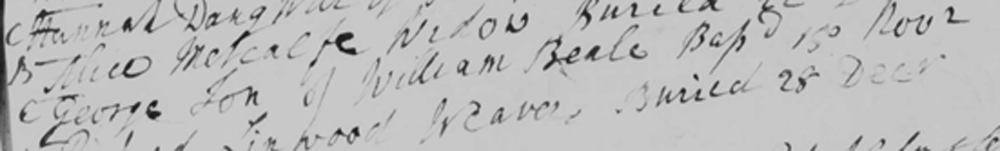 C Hannah Daughter of
B Alice Metcalfe Widow Buried
C George Son of William Beale Bapd 15 Novr
Linwood Weaver Buried 28 Decr